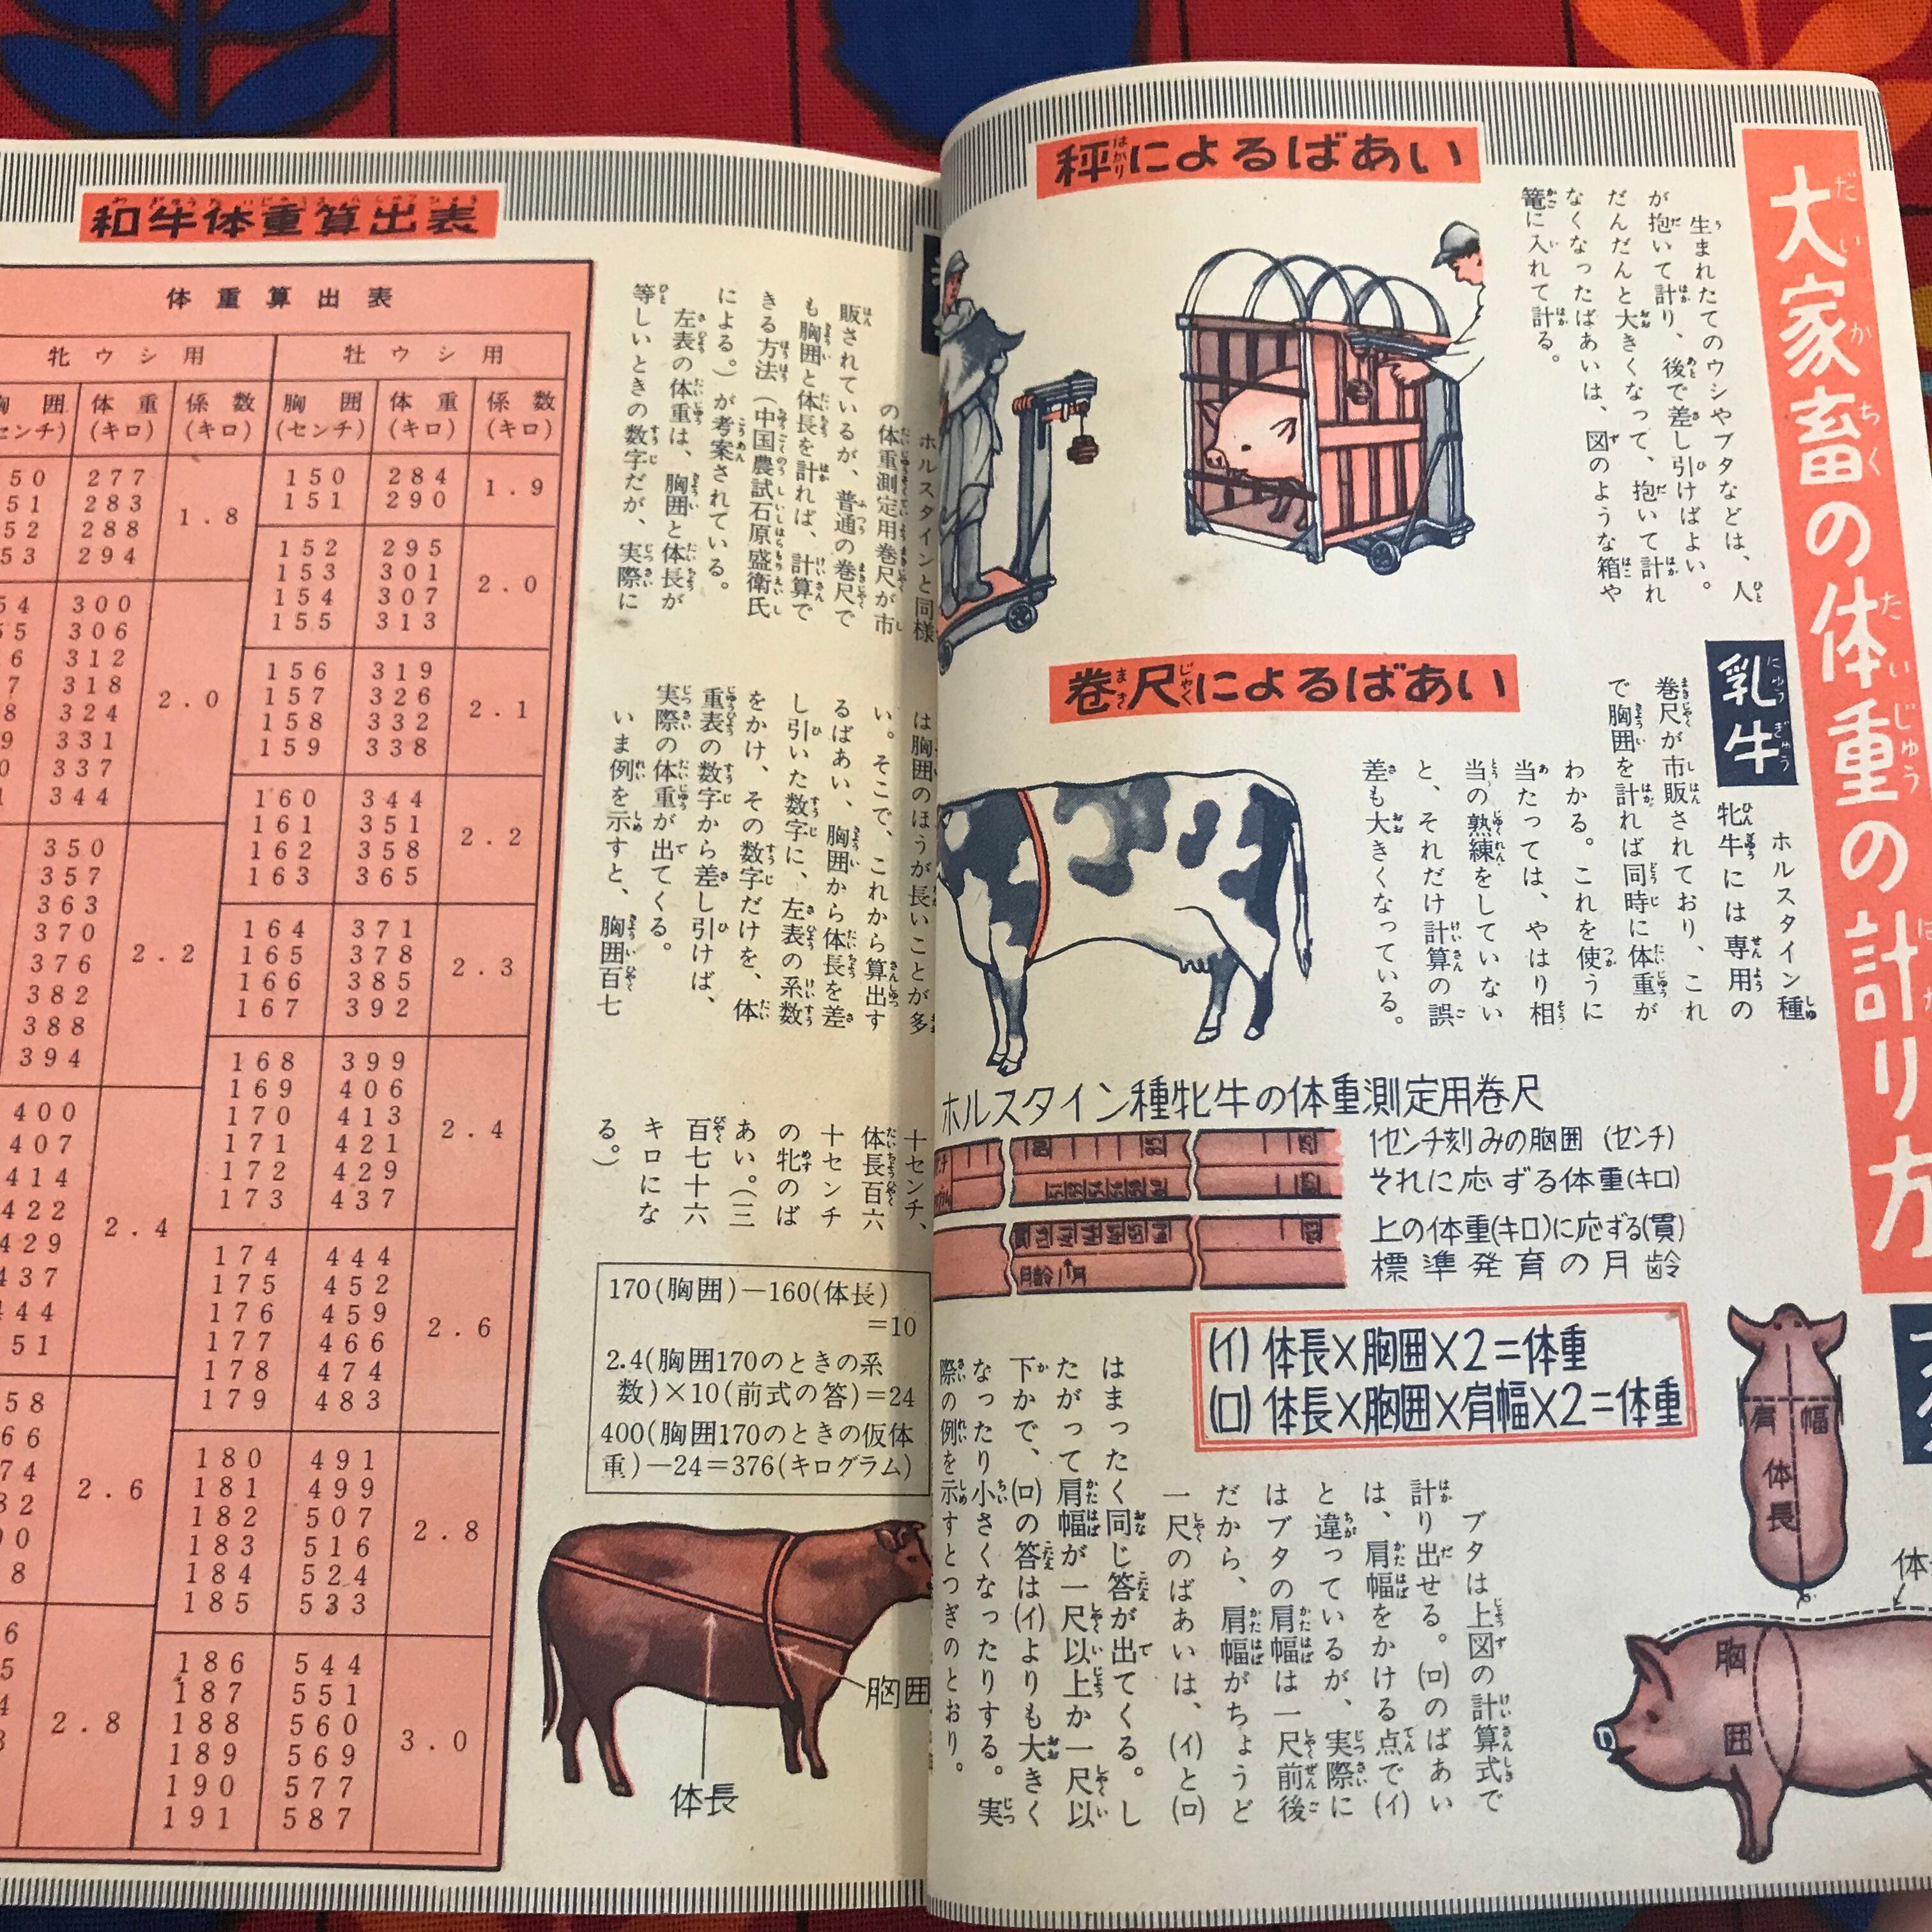 大家畜の体重の計り方
秤によるばあい
生まれたてのウシやブタなどは、人
が抱いて計り、後で差し引けばよい。
だんだんと大きくなって、抱いて計れ
なくなったばあいは、図のような箱や
篭に入れて計る。
巻尺によるばあい
乳牛
ホルスタイン種
牝牛には専用の
巻尺が市販されており、これ
で胸囲を計れば同時に体重が
わかる。これを使うに
当たっては、やはり相
当の熟練をしていない
と、それだけ計算の誤
差も大きくなっている。
ホルスタイン種牝牛の体重測定用巻尺
1センチ刻みの胸囲(センチ)
それに応ずる体重(キロ)
上の体重(キロ)に応ずる(貫)
標準発育の月齢
月齢1月
(イ) 体長×胸囲×2=体重
(ロ) 体長×胸囲×肩幅×2=体重
肩幅
体長
胸囲
ブタは上図の計算式で
計り出せる。(ロ)のばあい
は、肩幅をかける点で(イ)
と違っているが、実際に
はブタの肩幅は一尺前後
だから、肩幅がちょうど
一尺のばあいは、(イ)と(ロ)
はまったく同じ答が出てくる。し
たがって肩幅が一尺以上か一尺以
下かで、(ロ)の答は(イ)よりも大きく
なったり小さくなったりする。実
際の例を示すとつぎのとおり。
ホルスタインと同様
の体重測定用巻尺が市
販されているが、普通の巻尺で
も胸囲と体長を計れば、計算で
きる方法(中国農試石原盛衛氏
による。)が考案されている。
左表の体重は、胸囲と体長が
等しいときの数字だが、実際に
は胸囲のほうが長いことが多
い。そこで、これから算出す
るばあい、胸囲から体長を差
し引いた数字に、左表の系数
をかけ、その数字だけを、体
重表の数字から差し引けば、
実際の体重が出てくる。
いま例を示すと、胸囲百七
十センチ、
体長百六
十センチ
の牝のば
あい。(三
百七十六
キロにな
る。)
170(胸囲)−160(体長)
=10
2.4(胸囲170のときの系
数)×10(前式の答)=24
400(胸囲170のときの仮体
重)−24=376(キログラム)
胸囲
体長
和牛体重算出表
体重算出表
牝ウシ用 牡ウシ用
胸囲(センチ) 体重(キロ) 係数(キロ) 胸囲(センチ) 体重(キロ) 係数(キロ)
150 284 1.9
151 290
152 295 2.0
153 301
154 307
155 313
156 319 2.1
157 326
158 332
159 338
160 344 2.2
161 351
162 358
163 365
164 371 2.3
165 378
166 385
167 392
168 399 2.4
169 406
170 413
171 421
172 429
173 437
174 444 2.6
175 452
176 459
177 466
178 474
179 483
180 491 2.8
181 499
182 507
183 516
184 524
185 533
186 544 3.0
187 551
188 560
189 569
190 577
191 587
50 277 1.8
51 283
52 288
53 294
54 300 2.0
55 306
6 312
7 318
8 324
9 331
0 337
1 344
350 2.2
357
363
370
376
382
388
394
400 2.4
407
414
422
429
437
444
451
58 2.6
66
74
82
90
8
6 2.8
5
4
3